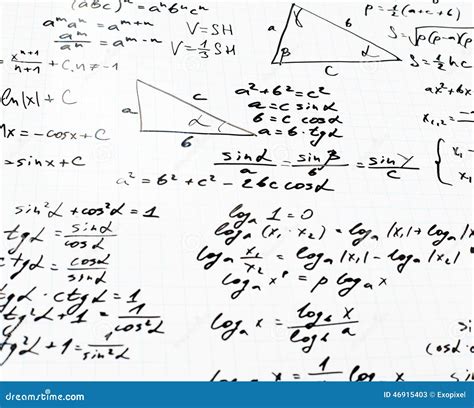 (abc)ⁿ = aⁿbⁿcⁿ
aᵐaⁿ = aᵐ⁺ⁿ
aᵐ/aⁿ = aᵐ⁻ⁿ
V = SH
V = 1/3 SH
a b c α β γ
p = 1/2 (a+b+c)
S = √p(p-a)(p-
S = 1/2 hc
xⁿ⁺¹/n+1 + C, n ≠ -1
ln|x| + C
= -cosx + C
= sinx + C
a c b α
a² + b² = c²
a = c sinα
b = c cosα
a = b · tgα
ax² + bx
x₁,₂ =
{ x₁
x₁ ·
sinα/a = sinβ/b = sinγ/c
a² = b² + c² - 2bc cosα
sin²α + cos²α = 1
tgα = sinα/cosα
ctgα = cosα/sinα
tgα · ctgα = 1
tg²α + 1 = 1/cos²α
tg²α + 1 = 1/sin²α
logₐ 1 = 0
logₐ (x₁ · x₂) = logₐ|x₁| + logₐ|x
logₐ x₁/x₂ = logₐ|x₁| - logₐ|x
logₐ xᵖ = p logₐ x
logₐ x = log_b x/log_b a
= 1/ logₐ x
(cosα ·
dreamstime.com
ID 46915403 © Exopixel